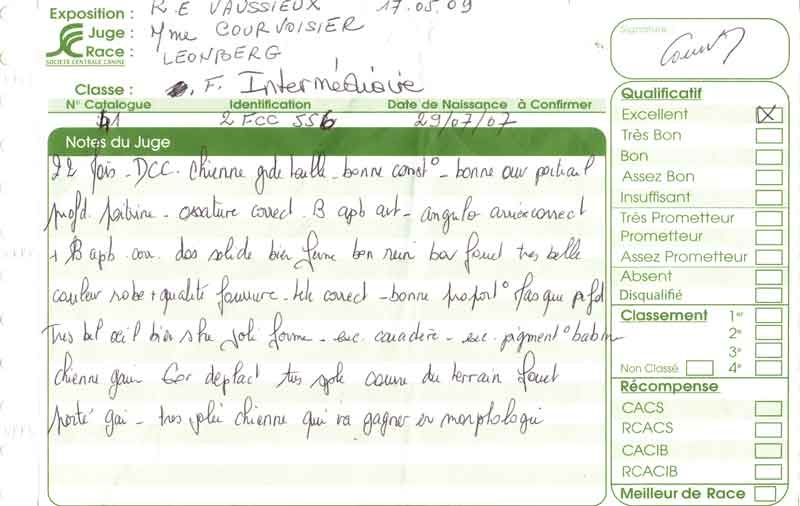 Exposition : R E VAUSSIEUX 17.05.09
Juge : Mme COURVOISIER
Race : LEONBERG
SOCIÉTÉ CENTRALE CANINE
Classe : F. Intermédiaire
N° Catalogue Identification Date de Naissance à Confirmer
41 2 FCC 556 29/07/07
Notes du Juge
22 mois - DCC. chienne gde taille - bonne const° - bonne ouv poitrail
profd. poitrine - ossature correct. B apb avt - angulo arrière correct
+ B apb. dos solide bien ferme bon rein bon fouet tres belle
couleur robe + qualité fourrure - tete correct - bonne proport° profd
Tres bel œil bien joli forme - exc. caractère - exc. pigment° babin
chienne gaie deplact tres couvre du terrain fouet
porté gai - tres jolie chienne qui va gagner en morphologie
Signature
Qualificatif
Excellent
Très Bon
Bon
Assez Bon
Insuffisant
Très Prometteur
Prometteur
Assez Prometteur
Absent
Disqualifié
Classement 1er
2e
3e
Non Classé 4e
Récompense
CACS
RCACS
CACIB
RCACIB
Meilleur de Race